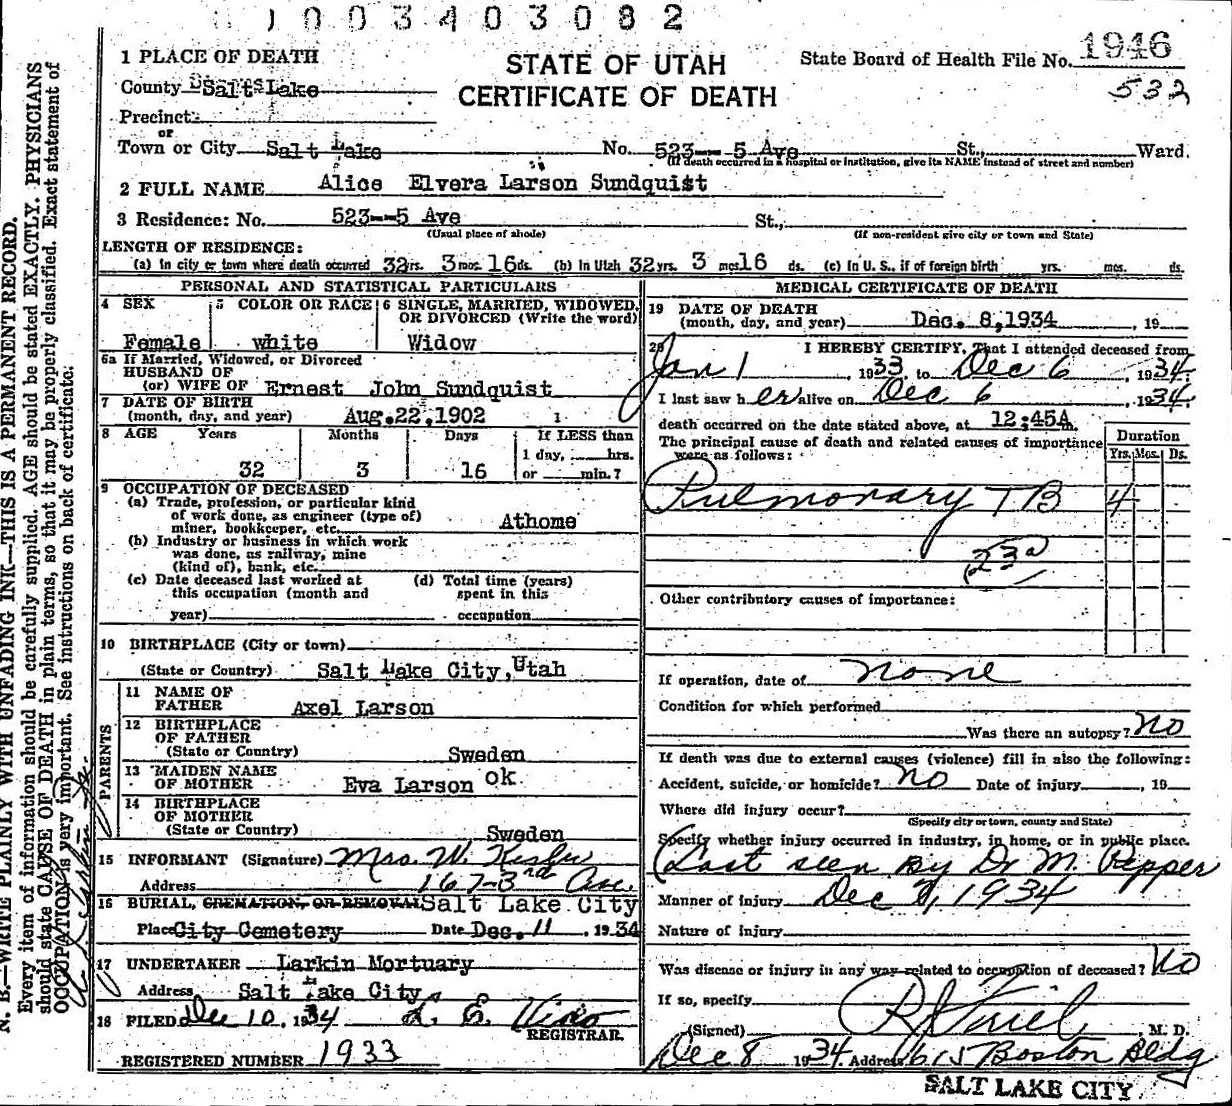 1003403082
1 PLACE OF DEATH
STATE OF UTAH
CERTIFICATE OF DEATH
State Board of Health File No. 1946
532
County Salt Lake
Precinct
or
Town or City Salt Lake No. 523--5 Ave St., Ward.
(If death occurred in a hospital or institution, give its NAME instead of street and number)
2 FULL NAME Alice Elvera Larson Sundquist
3 Residence: No. 523--5 Ave St.,
(Usual place of abode) (If non-resident give city or town and State)
LENGTH OF RESIDENCE:
(a) In city or town where death occurred 32yrs. 3 mos. 16ds. (b) In Utah 32yrs. 3 mos16 ds. (c) In U. S., if of foreign birth yrs. mos. ds.
PERSONAL AND STATISTICAL PARTICULARS
4 SEX 5 COLOR OR RACE 6 SINGLE, MARRIED, WIDOWED,
OR DIVORCED (Write the word)
Female white Widow
6a If Married, Widowed, or Divorced
HUSBAND OF
(or) WIFE OF Ernest John Sundquist
7 DATE OF BIRTH
(month, day, and year) Aug.22,1902 1
8 AGE Years Months Days If LESS than
1 day, hrs.
32 3 16 or min.?
9 OCCUPATION OF DECEASED
(a) Trade, profession, or particular kind
of work done, as engineer (type of)
miner, bookkeeper, etc. Athome
(b) Industry or business in which work
was done, as railway, mine
(kind of), bank, etc.
(c) Date deceased last worked at (d) Total time (years)
this occupation (month and spent in this
year) occupation
10 BIRTHPLACE (City or town)
(State or Country) Salt Lake City,Utah
PARENTS
11 NAME OF
FATHER Axel Larson
12 BIRTHPLACE
OF FATHER
(State or Country) Sweden
13 MAIDEN NAME
OF MOTHER Eva Larson ok
14 BIRTHPLACE
OF MOTHER
(State or Country) Sweden
15 INFORMANT (Signature) Mrs. W.
Address 167-3rd Ave.
16 BURIAL, CREMATION, OR REMOVAL Salt Lake City
Place City Cemetery Date Dec. 11 , 1934
17 UNDERTAKER Larkin Mortuary
Address Salt Lake City
18 FILED Dec 10, 1934
REGISTRAR.
REGISTERED NUMBER 1933
MEDICAL CERTIFICATE OF DEATH
19 DATE OF DEATH
(month, day, and year) Dec. 8,1934 , 19
20 I HEREBY CERTIFY, That I attended deceased from
Jan 1 , 1933, to Dec 6 , 1934.
I last saw her alive on Dec 6 , 1934.
death occurred on the date stated above, at 12:45A m.
The principal cause of death and related causes of importance
were as follows:
Duration
Yrs. Mos. Ds.
Pulmonary TB 4
23a
Other contributory causes of importance:
If operation, date of none
Condition for which performed
Was there an autopsy? No
If death was due to external causes (violence) fill in also the following:
Accident, suicide, or homicide? no Date of injury , 19
Where did injury occur?
(Specify city or town, county and State)
Specify whether injury occurred in industry, in home, or in public place.
(Last seen By Dr M. Pepper
Manner of injury Dec 7, 1934
Nature of injury
Was disease or injury in any way related to occupation of deceased? No
If so, specify
(Signed) , M. D.
Dec 8 1934 Address 615 Boston Bldg
SALT LAKE CITY
N. B.—WRITE PLAINLY WITH UNFADING INK—THIS IS A PERMANENT RECORD.
Every item of information should be carefully supplied. AGE should be stated EXACTLY. PHYSICIANS
should state CAUSE OF DEATH in plain terms, so that it may be properly classified. Exact statement of
OCCUPATION is very important. See instructions on back of certificate.